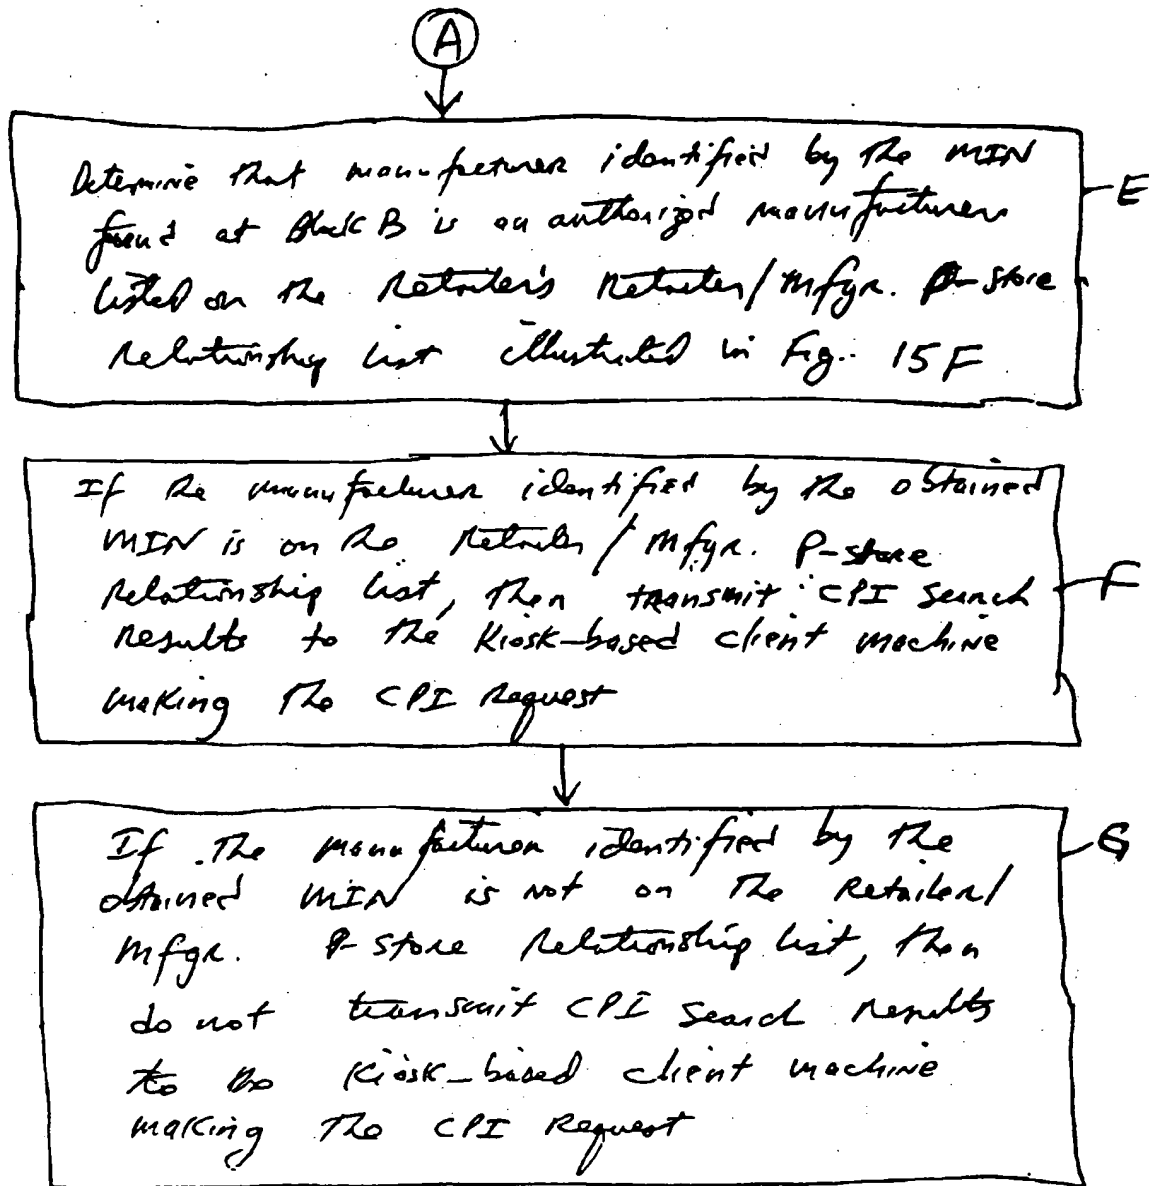 A
Determine that manufacturer identified by the MIN
E
found at Block B is an authorized manufacturer
listed on the Retailer's Retailer/Mfgr. P-store
relationship list illustrated in Fig. 15F
If the manufacturer identified by the obtained
MIN is on the Retailer/Mfgr. P-store
relationship list, then transmit CPI search
F
results to the kiosk-based client machine
making the CPI Request
If the manufacturer identified by the
G
obtained MIN is not on the Retailer/
Mfgr. P-store relationship list, then
do not transmit CPI search results
to the kiosk-based client machine
making the CPI Request